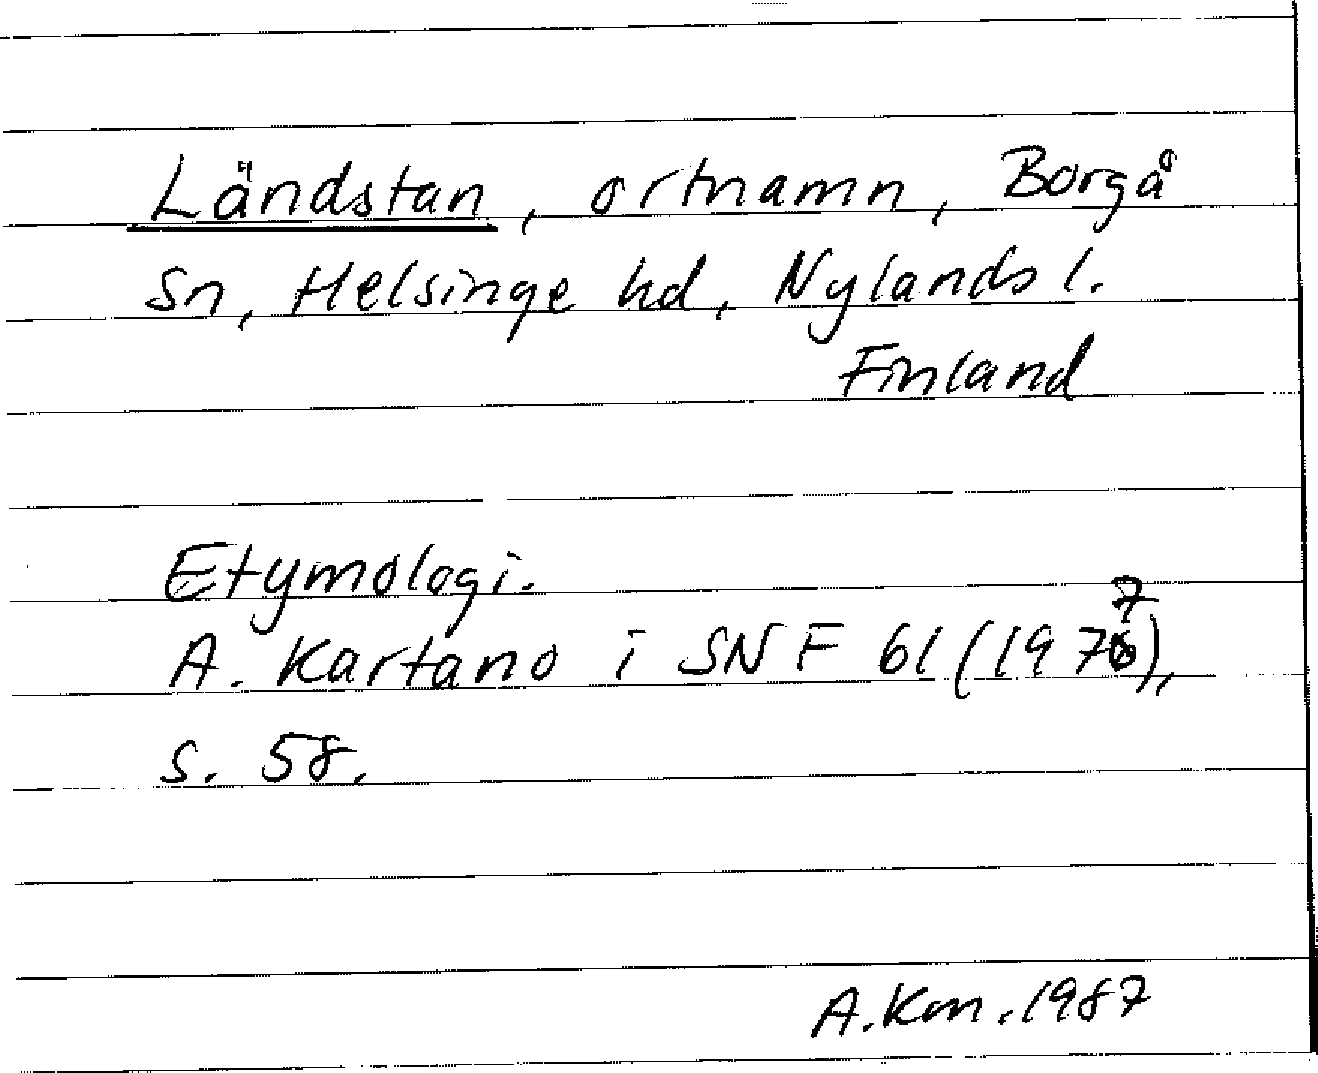 Ländstan, ortnamn, Borgå
sn, Helsinge hd, Nylands l.
Finland
Etymologi.
A. Kartano i SNF 61 (1977),
s. 58.
A.Km.1987